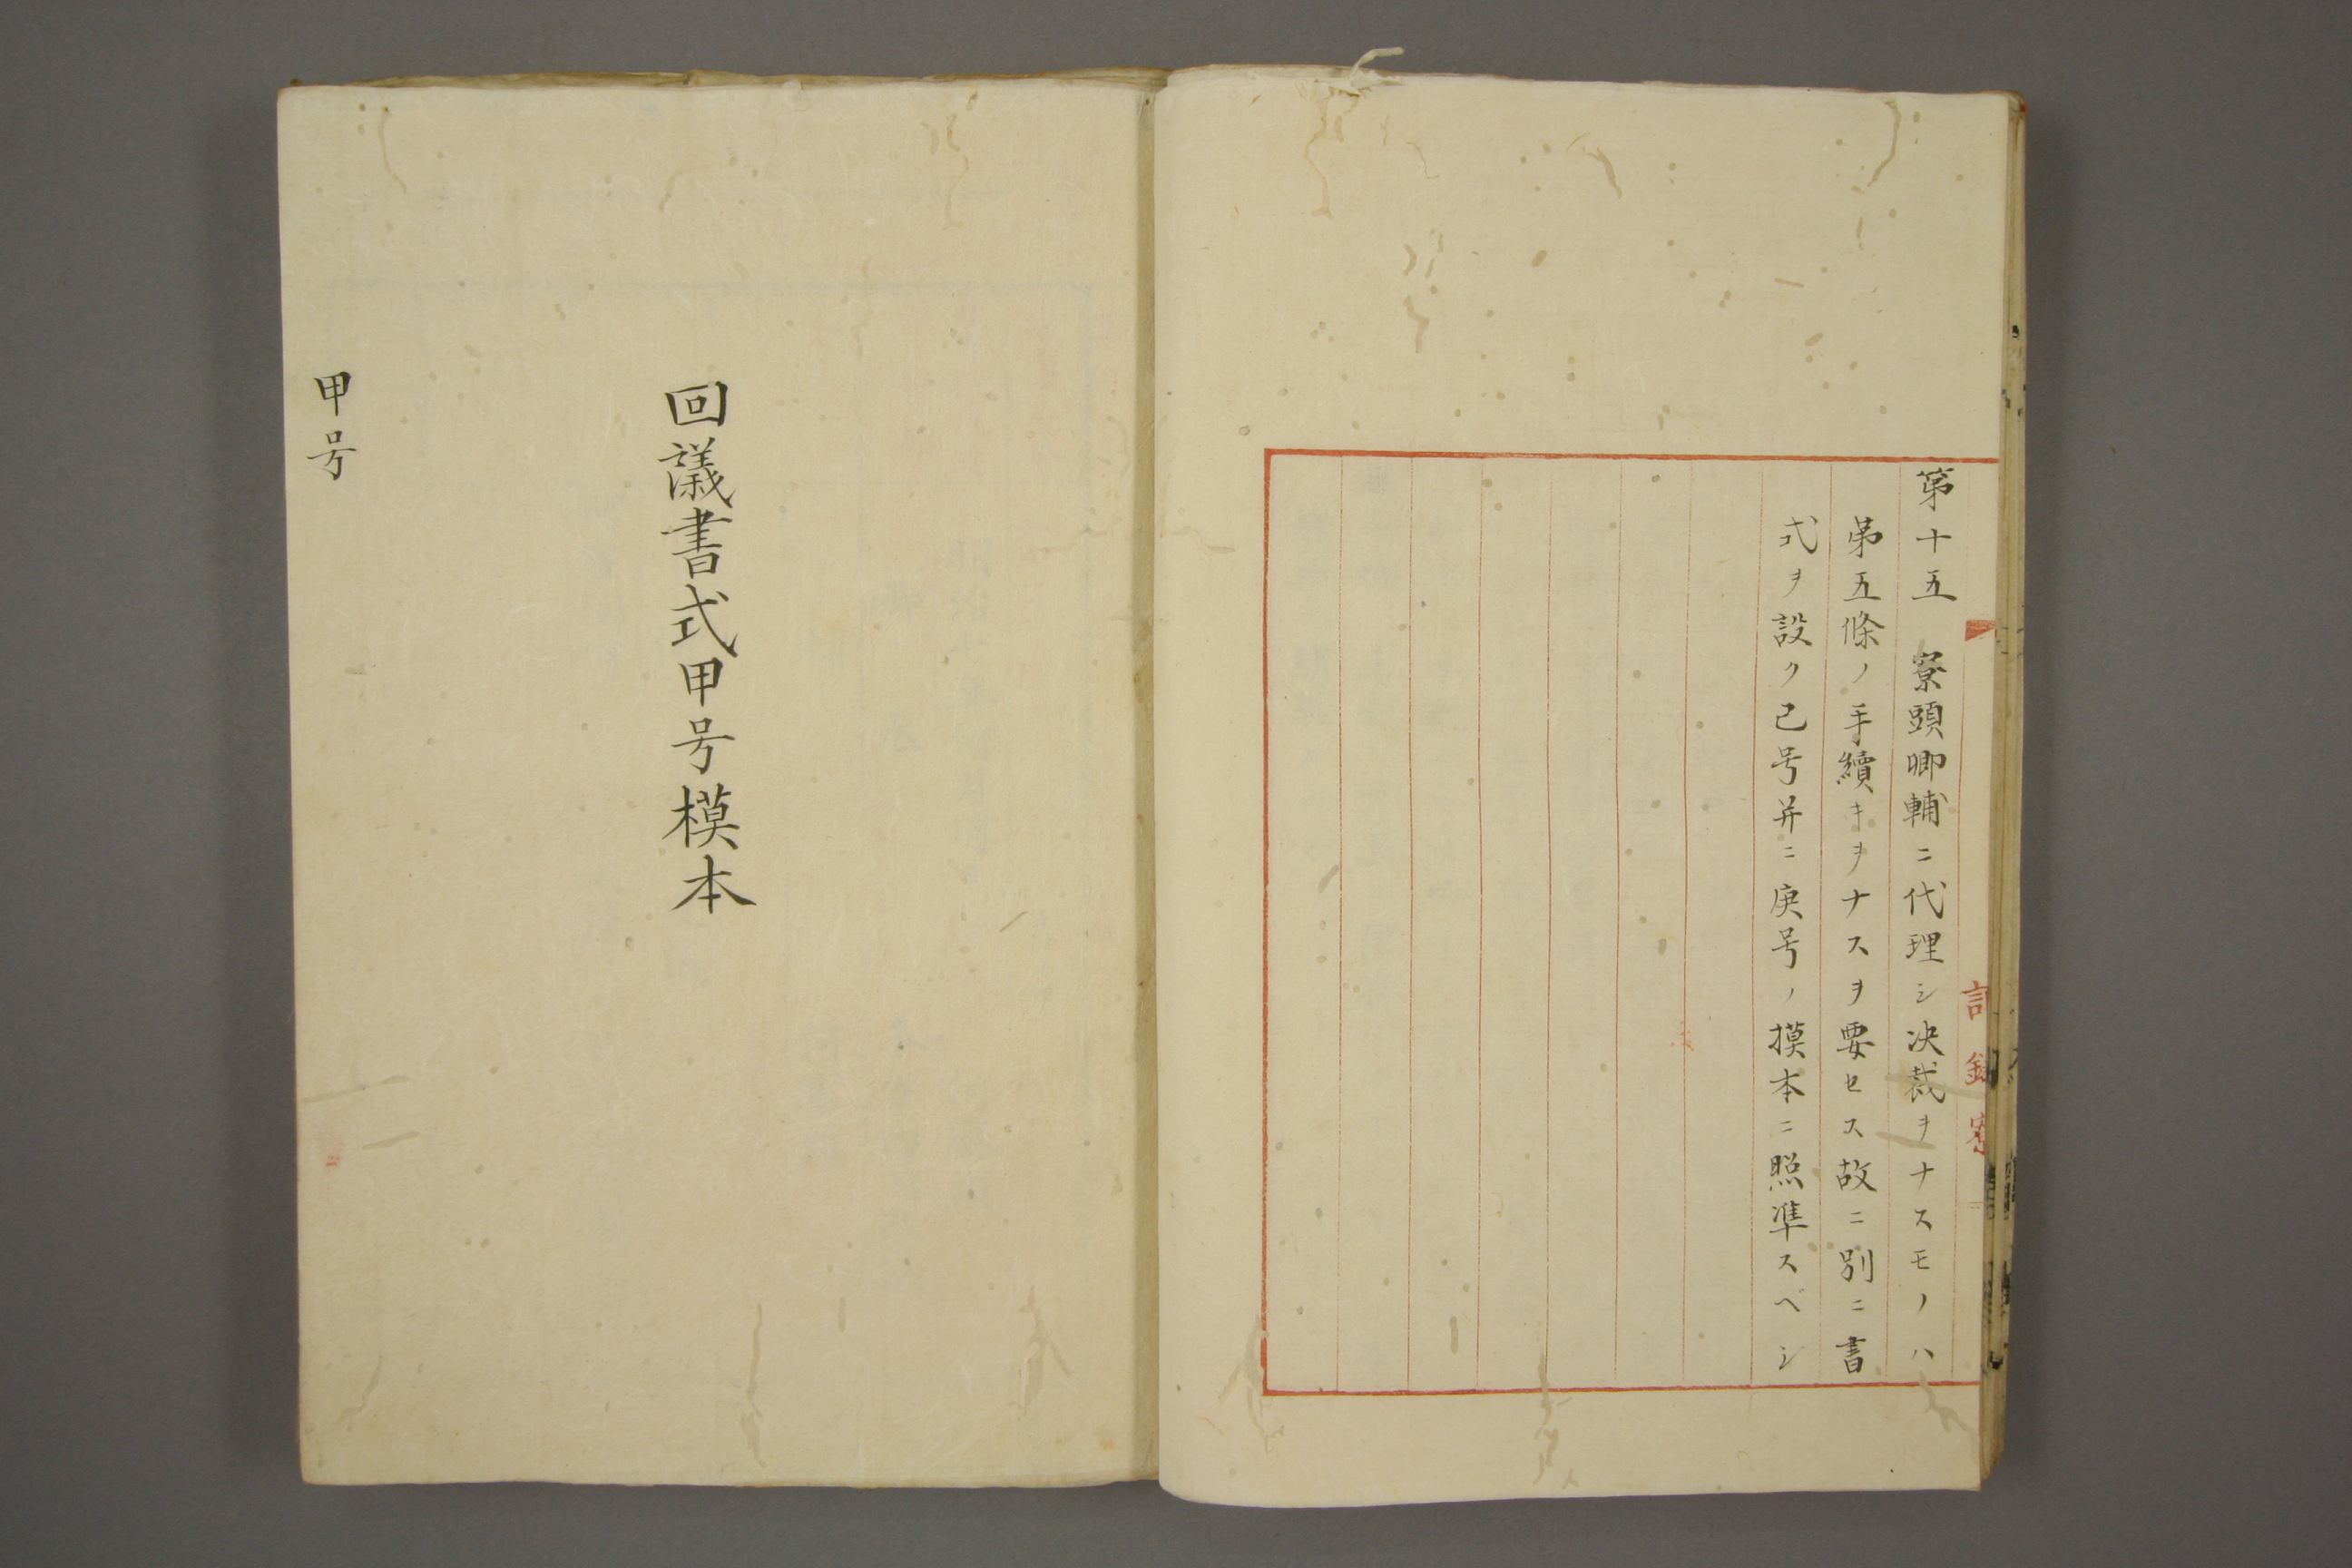 第十五　寮頭卿輔ニ代理シ決裁ヲナスモノハ
第五條ノ手續キヲナスヲ要セス故ニ別ニ書
式ヲ設ク己号并ニ庚号ノ摸本ニ照準スベシ
記録寮
回議書式甲号模本
甲号